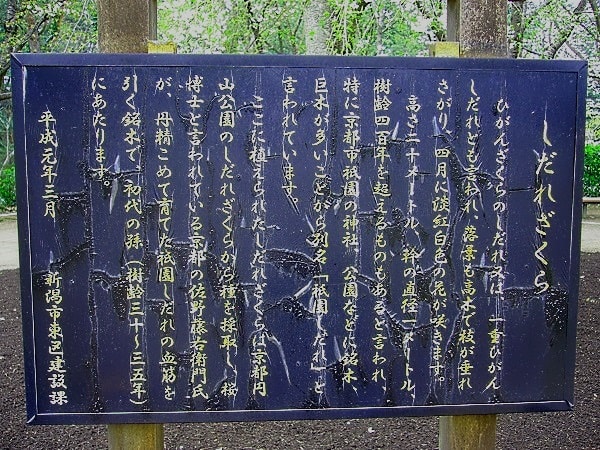 しだれざくら
ひがんざくらのしだれ又は、一重ひがん
しだれとも言われ、落葉も高木で枝が垂れ
さがり、四月に淡紅白色の花が咲きます。
高さ二十メートル、幹の直径一メートル、
樹齢四百年を超えるものもあると言われ
特に京都市祇園の神社、公園などに銘木、
巨木が多いことから別名「祇園しだれ」と
言われています。
ここに植えられたしだれざくらは京都円
山公園のしだれざくらから種を採取し、桜
博士と言われている京都の佐野藤右衛門氏
が、丹精こめて育てた祇園しだれの血筋を
引く銘木で、初代の孫（樹齢三十〜三五年）
にあたります。
平成元年三月
新潟市東区建設課